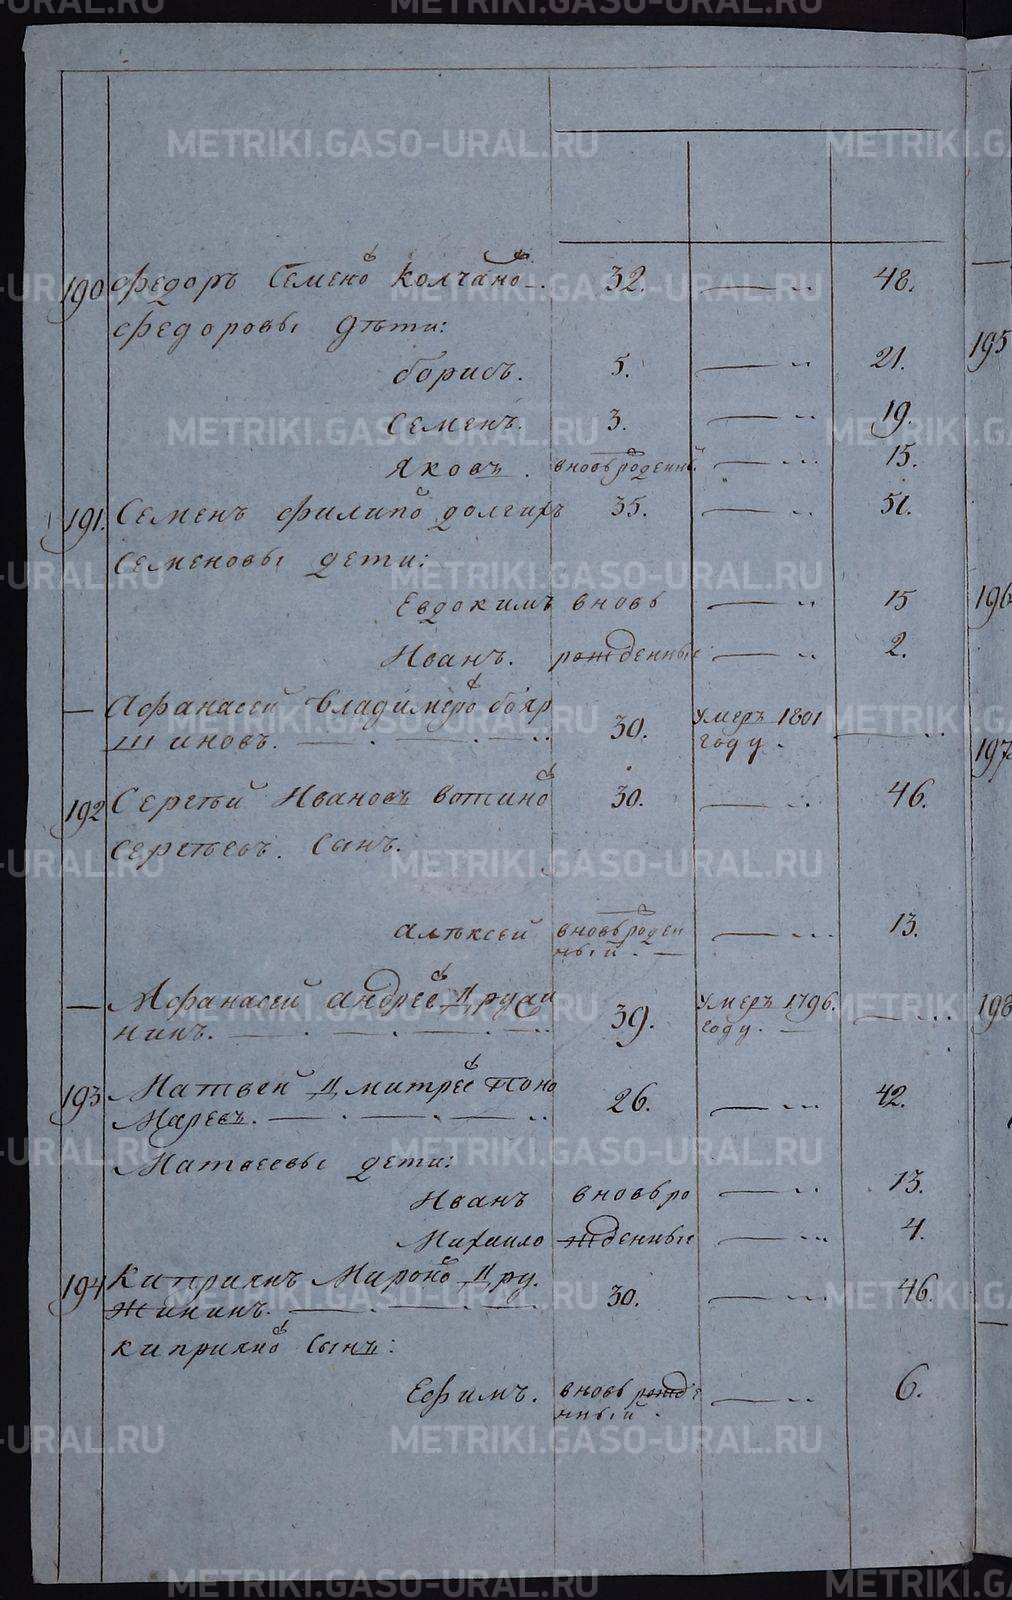 190 Федоръ Семено в Колчано в 32. 48.
Федоровы Дѣти:
борисъ. 5. 21.
Семенъ. 3. 19.
Яковъ. вновьроденный 15.
191. Семенъ Филипо в долгихъ 35. 51.
Семеновы дети:
Евдокимъ вновь 15
Иванъ. рожденные 2.
Афанасей Владимеро в бояр 30. умеръ 1801
шиновъ. году.
192 Сергѣй Ивановъ вотино в 30. 46.
Сергѣевъ. Сынъ.
алѣксей вновьроден 13.
ный.
Афанасей андрее в Дружи 39. умеръ 1796.
нинъ. году.
193 Матвей Дмитрее в Поно 26. 42.
Маревъ.
Матвеевы дети:
Иванъ вновьро 13.
Михаило жденные 4.
194 Киприянъ Мироно в Дру. 30. 46.
Жининъ.
Киприяно в Сынъ:
Ефимъ. вновь рожде 6.
нный.
195
196
197
198
METRIKI.GASO-URAL.RU